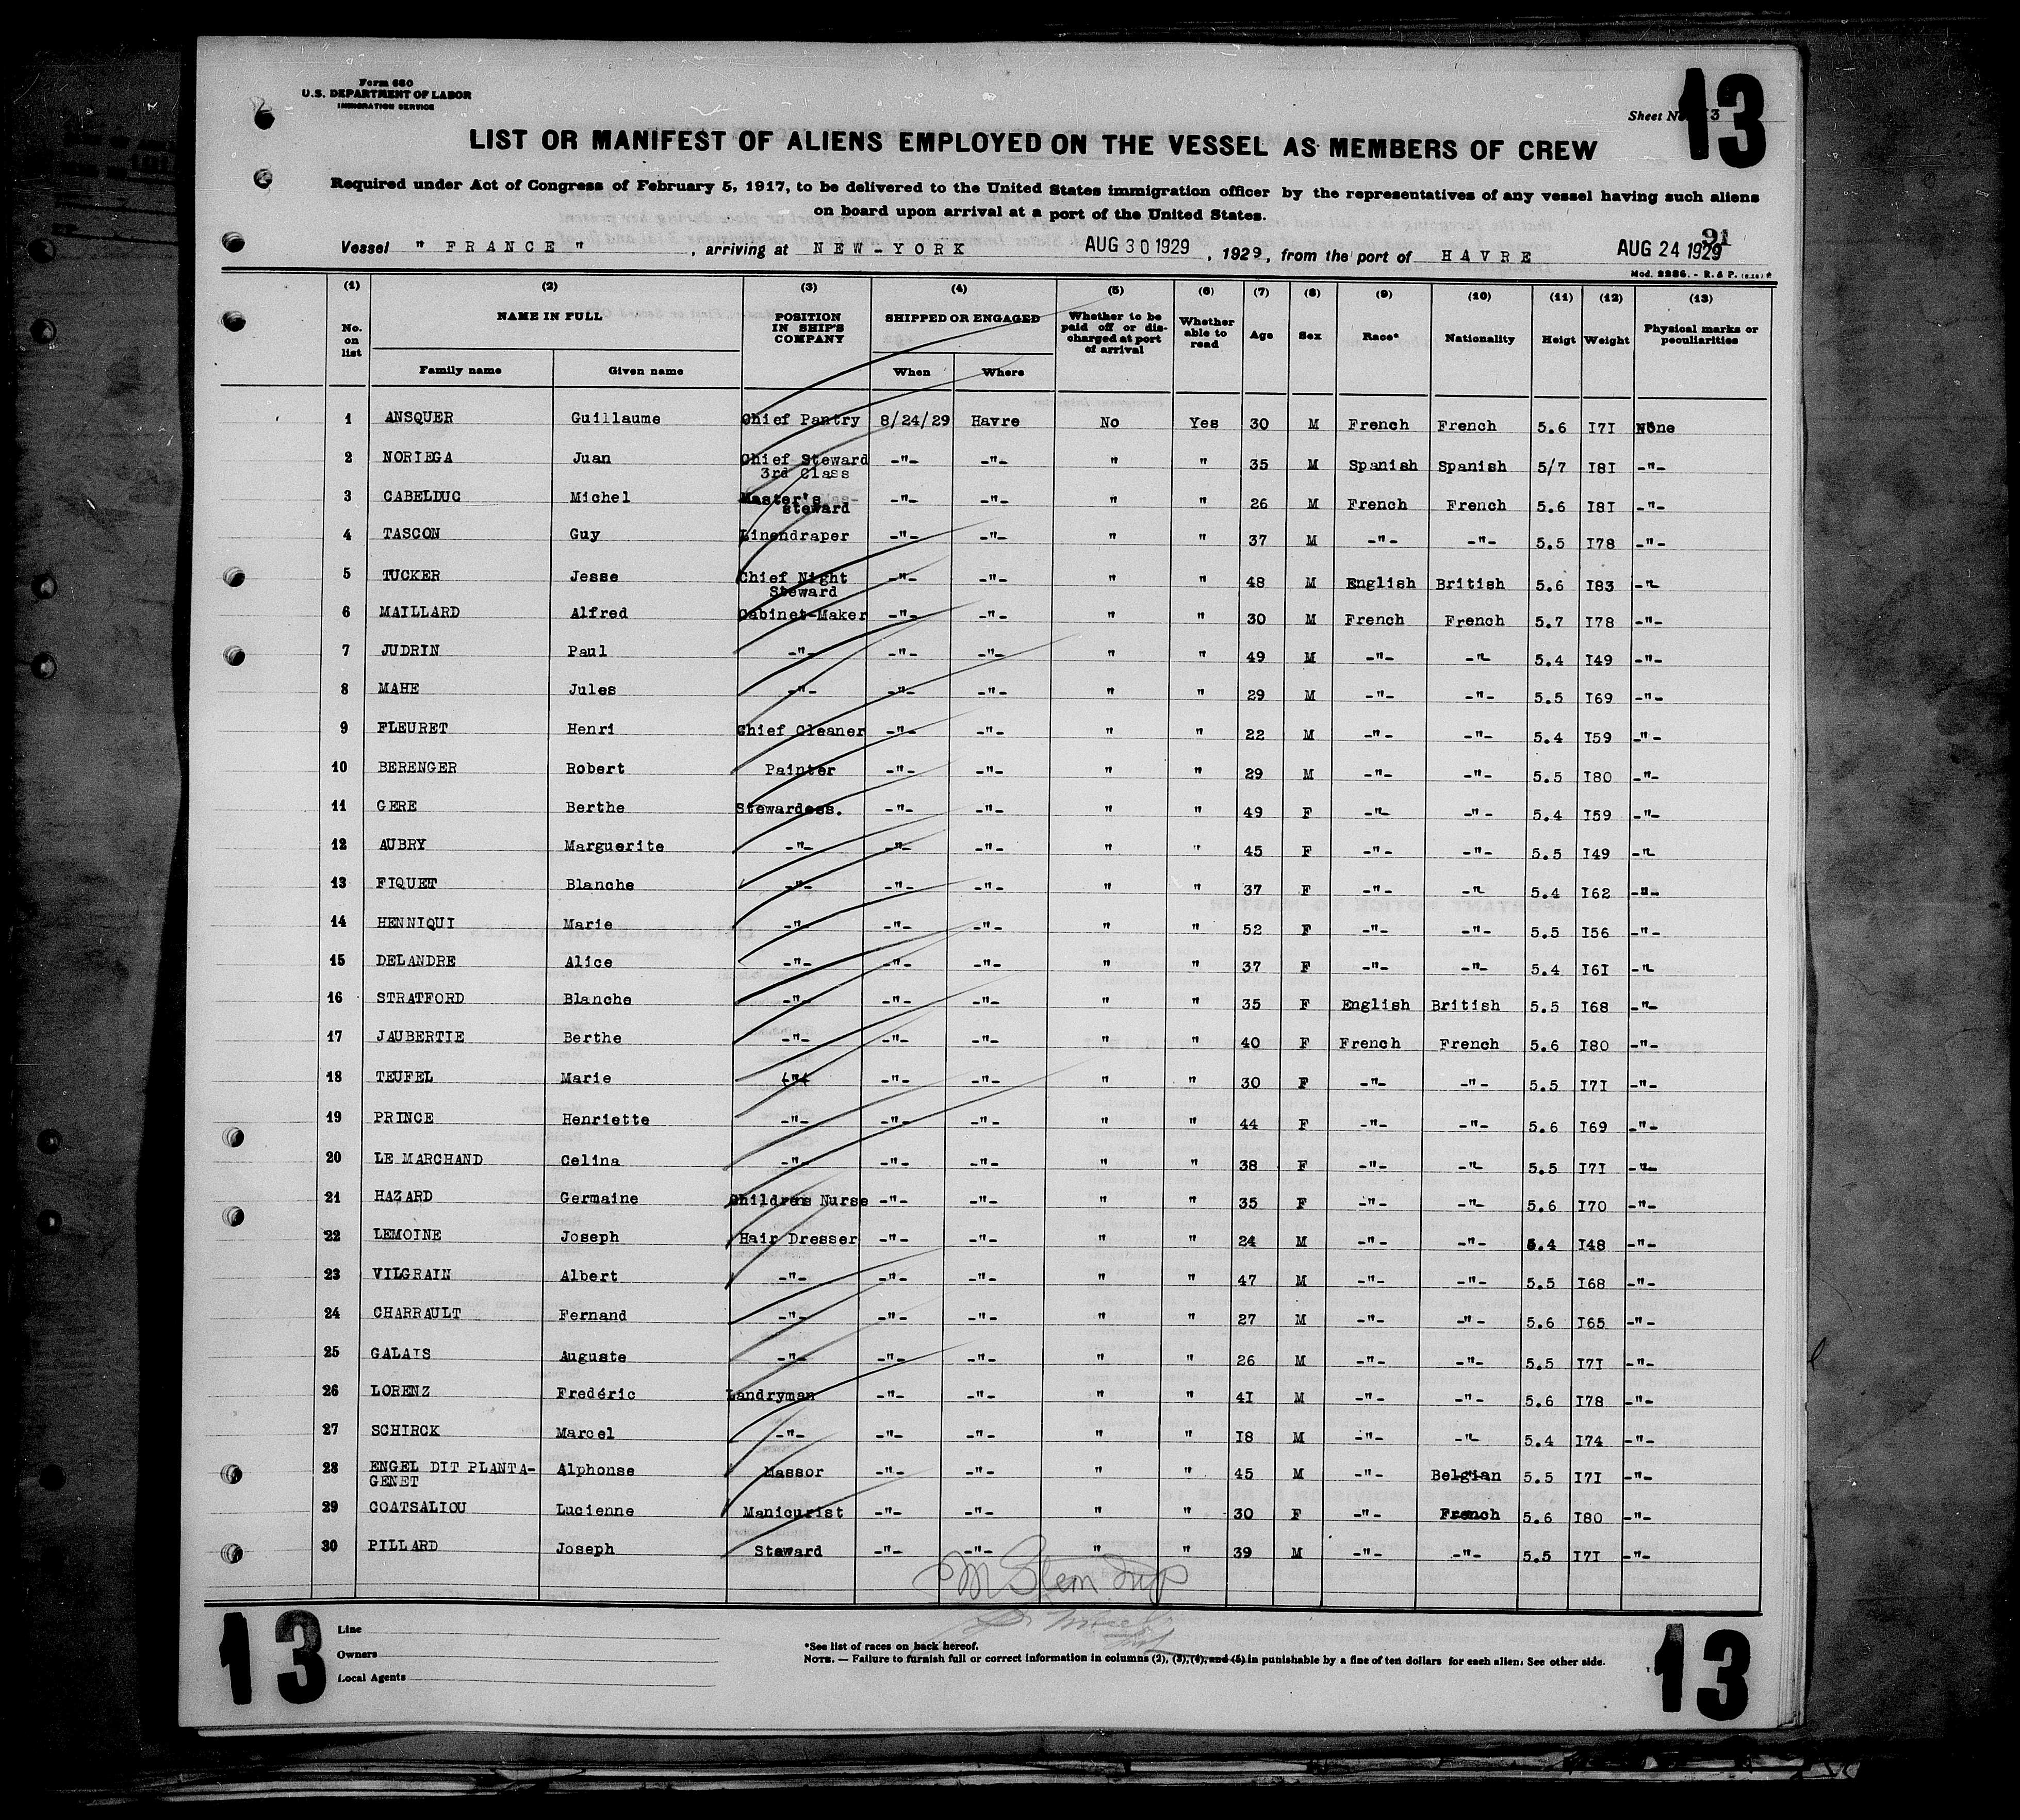 Form 680
U.S. DEPARTMENT OF LABOR
IMMIGRATION SERVICE
Sheet No. 13
13
LIST OR MANIFEST OF ALIENS EMPLOYED ON THE VESSEL AS MEMBERS OF CREW
Required under Act of Congress of February 5, 1917, to be delivered to the United States immigration officer by the representatives of any vessel having such aliens
on board upon arrival at a port of the United States.
91
Vessel " FRANCE " , arriving at NEW-YORK AUG 30 1929 , 1929, from the port of HAVRE AUG 24 1929
Mod. 2286. - R. & P.
(1) (2) (3) (4) (5) (6) (7) (8) (9) (10) (11) (12) (13)
No. on list NAME IN FULL Family name Given name POSITION IN SHIP'S COMPANY SHIPPED OR ENGAGED When Where Whether to be paid off or discharged at port of arrival Whether able to read Age Sex Race* Nationality Heigt Weight Physical marks or peculiarities
1 ANSQUER Guillaume Chief Pantry 8/24/29 Havre No Yes 30 M French French 5.6 I7I None
2 NORIEGA Juan Chief Steward 3rd Class -"- -"- " " 35 M Spanish Spanish 5/7 I8I -"-
3 CABELDUC Michel Master's steward -"- -"- " " 26 M French French 5.6 I8I -"-
4 TASCON Guy Linendraper -"- -"- " " 37 M -"- -"- 5.5 I78 -"-
5 TUCKER Jesse Chief Night Steward -"- -"- " " 48 M English British 5.6 I83 -"-
6 MAILLARD Alfred Cabinet-Maker -"- -"- " " 30 M French French 5.7 I78 -"-
7 JUDRIN Paul -"- -"- -"- " " 49 M -"- -"- 5.4 I49 -"-
8 MAHE Jules -"- -"- -"- " " 29 M -"- -"- 5.5 I69 -"-
9 FLEURET Henri Chief Cleaner -"- -"- " " 22 M -"- -"- 5.4 I59 -"-
10 BERENGER Robert Painter -"- -"- " " 29 M -"- -"- 5.5 I80 -"-
11 GERE Berthe Stewardess. -"- -"- " " 49 F -"- -"- 5.4 I59 -"-
12 AUBRY Marguerite -"- -"- -"- " " 45 F -"- -"- 5.5 I49 -"-
13 FIQUET Blanche -"- -"- -"- " " 37 F -"- -"- 5.4 I62 -"-
14 HENNIQUI Marie -"- -"- -"- " " 52 F -"- -"- 5.5 I56 -"-
15 DELANDRE Alice -"- -"- -"- " " 37 F -"- -"- 5.4 I6I -"-
16 STRATFORD Blanche -"- -"- -"- " " 35 F English British 5.5 I68 -"-
17 JAUBERTIE Berthe -"- -"- -"- " " 40 F French French 5.6 I80 -"-
18 TEUFEL Marie -"- -"- -"- " " 30 F -"- -"- 5.5 I7I -"-
19 PRINCE Henriette -"- -"- -"- " " 44 F -"- -"- 5.6 I69 -"-
20 LE MARCHAND Celina -"- -"- -"- " " 38 F -"- -"- 5.5 I7I -"-
21 HAZARD Germaine Childrens Nurse -"- -"- " " 35 F -"- -"- 5.6 I70 -"-
22 LEMOINE Joseph Hair Dresser -"- -"- " " 24 M -"- -"- 5.4 I48 -"-
23 VILGRAIN Albert -"- -"- -"- " " 47 M -"- -"- 5.5 I68 -"-
24 CHARRAULT Fernand -"- -"- -"- " " 27 M -"- -"- 5.6 I65 -"-
25 GALAIS Auguste -"- -"- -"- " " 26 M -"- -"- 5.5 I7I -"-
26 LORENZ Fredéric Landryman -"- -"- " " 4I M -"- -"- 5.6 I78 -"-
27 SCHIRCK Marcel -"- -"- -"- " " I8 M -"- -"- 5.4 I74 -"-
28 ENGEL DIT PLANTA-GENET Alphonse Massor -"- -"- " " 45 M -"- Belgian 5.5 I7I -"-
29 COATSALIOU Lucienne Manicurist -"- -"- " " 30 F -"- French 5.6 I80 -"-
30 PILLARD Joseph Steward -"- -"- " " 39 M -"- -"- 5.5 I7I -"-
13
Line
Owners
Local Agents
*See list of races on back hereof.
NOTE. — Failure to furnish full or correct information in columns (2), (3), (4), and (5) in punishable by a fine of ten dollars for each alien. See other side.
13